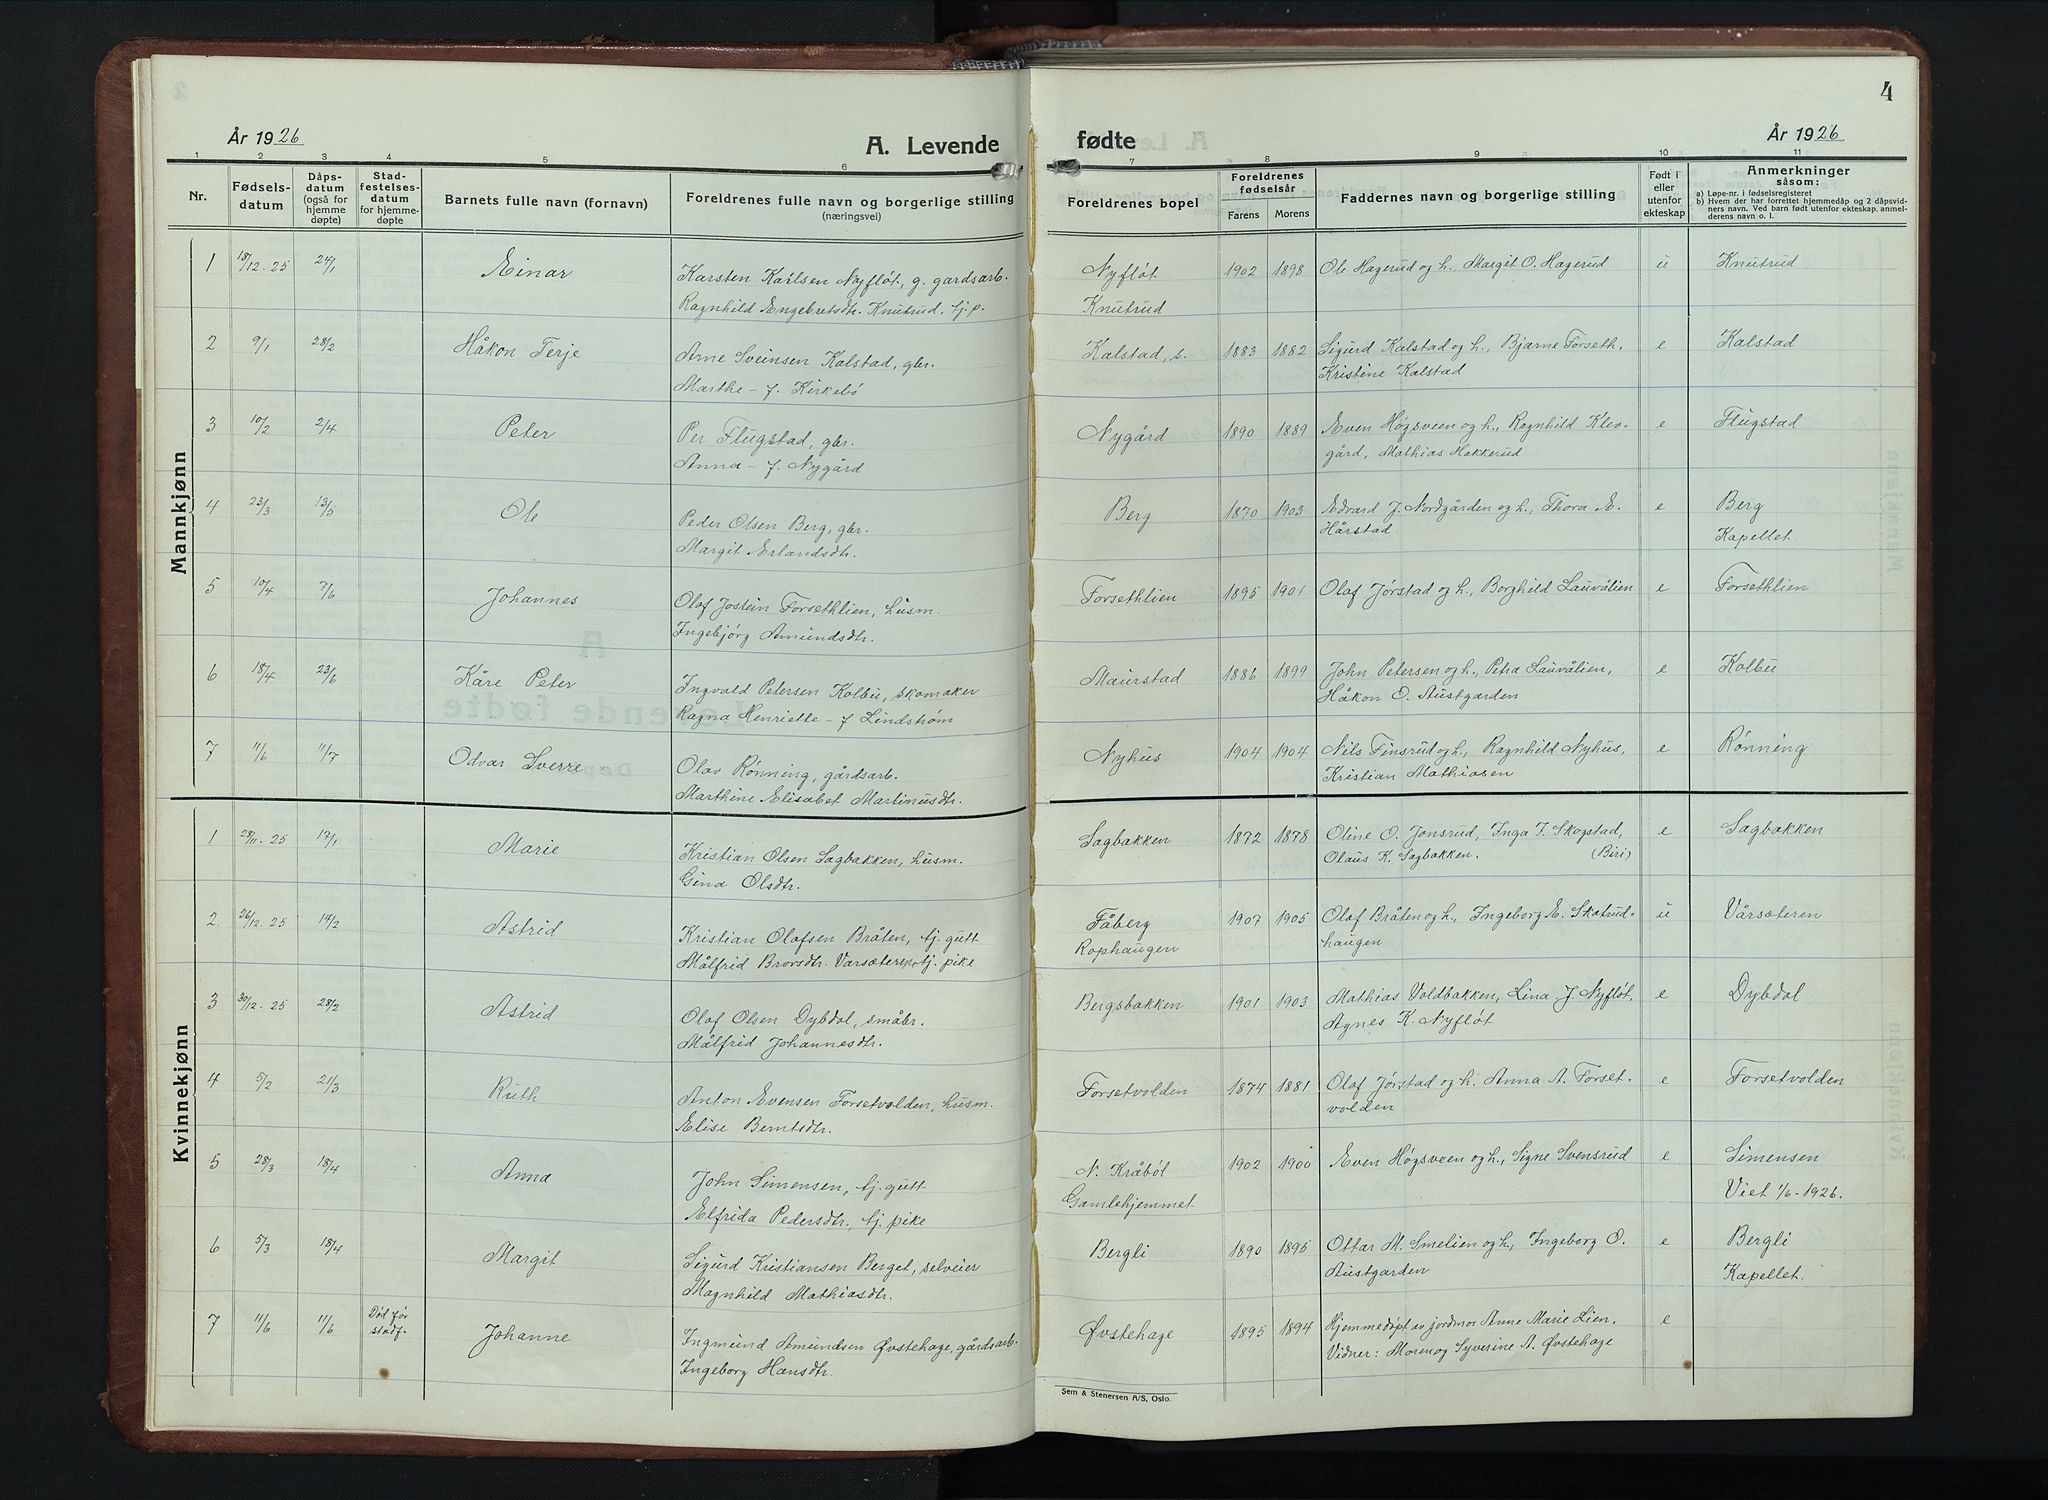 År 1926
A. Levende
1 2 3 4 5 6
Nr.
Fødselsdatum
Dåpsdatum (også for hjemmedøpte)
Stadfestelsesdatum for hjemmedøpte
Barnets fulle navn (fornavn)
Foreldrenes fulle navn og borgerlige stilling
(næringsvei)
Mannkjønn
1 18/12.25 24/1 Einar Karsten Karlsen Nyfløt, g. gardsarb.
Ragnhild Engebretsdtr. Knutrud, tj.p.
2 9/1 28/2 Håkon Terje Arne Sveinsen Kalstad, gbr.
Marthe - f. Kirkebø
3 10/2 2/4 Peter Per Flugstad, gbr.
Anna - f. Nygård
4 23/3 13/5 Ole Peder Olsen Berg, gbr.
Margit Erlandsdtr.
5 10/4 7/6 Johannes Olaf Jostein Forsethlien, husm.
Ingebjørg Amundsdtr.
6 18/4 23/6 Kåre Peter Ingvald Petersen Kolbu, skomaker
Ragna Henriette - f Lindstrøm
7 11/6 11/7 Odvar Sverre Olav Rønning, gårdsarb.
Marthine Elisabet Martinusdtr.
Kvinnekjønn
1 28/11.25 17/1 Marie Kristian Olsen Sagbakken, husm.
Gina Olsdtr.
2 26/12.25 14/2 Astrid Kristian Olafsen Bråten, tj. gutt
Målfrid Brorsdtr. Varsæteren, tj. pike
3 30/12.25 28/2 Astrid Olaf Olsen Dybdal, småbr.
Målfrid Johannesdtr.
4 5/2 21/3 Ruth Anton Evensen Forsetvolden, husm.
Elise Berntsdtr.
5 28/3 18/4 Anna John Simensen, tj. gutt
Elfrida Pedersdtr., tj. pike
6 5/3 18/4 Margit Sigurd Kristiansen Berget, selveier
Magnhild Mathiasdtr.
7 11/6 11/6 Død før stadf. Johanne Ingmund Amundsen Øvstehage, gårdsarb.
Ingeborg Hansdtr.
4
fødte
År 1926
7 8 9 10 11
Foreldrenes bopel
Foreldrenes fødselsår
Farens Morens
Faddernes navn og borgerlige stilling
Født i eller utenfor ekteskap
Anmerkninger
såsom:
a) Løpe-nr. i fødselsregisteret
b) Hvem der har forrettet hjemmedåp og 2 dåpsvidners navn. Ved barn født utenfor ekteskap. anmelderens navn o. l.
Nyfløt 1902 1898 Ole Hagerud og h. Margit O. Hagerud u Knutrud
Knutrud
Kalstad, s. 1883 1882 Sigurd Kalstad og h., Bjarne Forseth, e Kalstad
Kristine Kalstad
Nygård 1890 1889 Even Høgsveen og h., Ragnhild Klev- e Flugstad
gård, Mathias Hakkerud
Berg 1870 1903 Edvard J. Nordgården og h., Thora E. e Berg
Hårstad Kapellet.
Forsethlien 1895 1901 Olaf Jørstad og h., Borghild Lauvålien e Forsethlien
Maurstad 1886 1899 John Petersen og h., Petra Lauvålien, e Kolbu
Håkon O. Austgarden
Nyhus 1904 1904 Nils Finsrud og h., Ragnhild Nyhus, e Rønning
Kristian Mathiasen
Sagbakken 1872 1878 Oline O. Jonsrud, Inga I. Skogstad, e Sagbakken
Olaus K. Sagbakken. (Biri)
Fåberg 1907 1905 Olaf Bråten og h., Ingeborg E. Skatrud- u Vårsæteren
Rophaugen haugen
Bergsbakken 1901 1903 Mathias Voldbakken, Lina J. Nyfløt, e Dybdal
Agnes K. Nyfløt
Forsetvolden 1874 1881 Olaf Jørstad og h. Anna A. Forset- e Forsetvolden
volden
N. Kråbøl 1902 1900 Even Høgsveen og h., Signe Svensrud e Simensen
Gamlehjemmet Viet 1/6-1926.
Bergli 1890 1895 Ottar M. Smelien og h., Ingeborg O. e Bergli
Austgarden Kapellet.
Øvstehage 1895 1894 Hjemmedøpt av jordmor Anne Marie Lien. e
Vidner: Moren og Syverine A. Øvstehage
Sem & Stenersen A/S, Oslo.